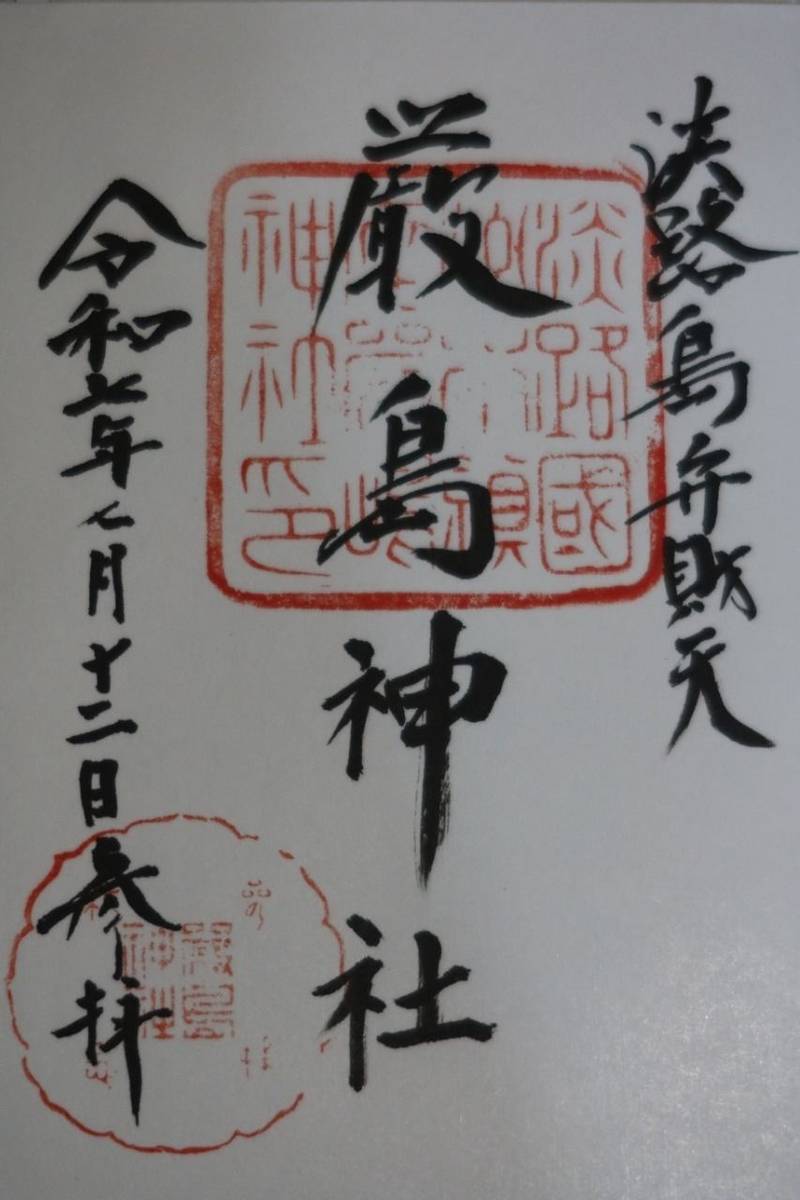 淡路島弁財天
厳島神社
令和七年七月十二日参拝
淡路國
神社印
厳島
神社